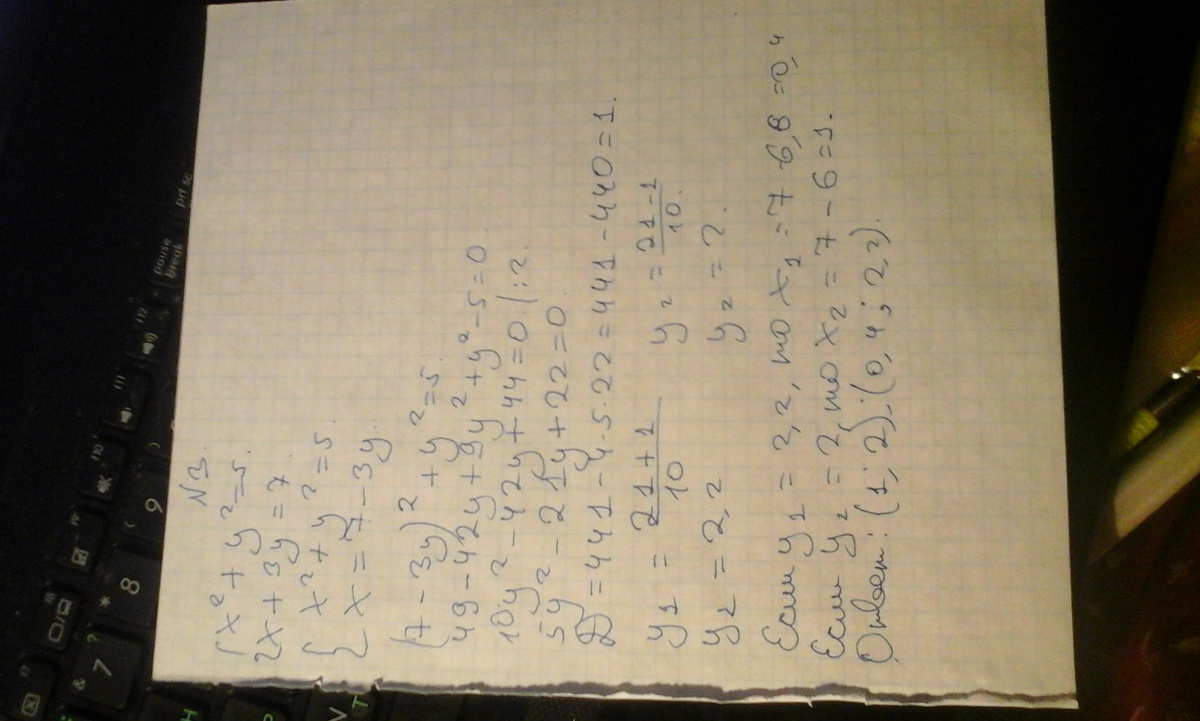 N3.
{ x² + y² = 5.
{ x + 3y = 7.
{ x² + y² = 5.
{ x = 7 - 3y.
(7 - 3y)² + y² = 5.
49 - 42y + 9y² + y² - 5 = 0.
10y² - 42y + 44 = 0. | : 2.
5y² - 21y + 22 = 0.
D = 441 - 4·5·22 = 441 - 440 = 1.
y₁ = (21 + 1)/10   y₂ = (21 - 1)/10.
y₁ = 2,2   y₂ = 2.
Если y₁ = 2,2, то x₁ = 7 - 6,6 = 0,4
Если y₂ = 2, то x₂ = 7 - 6 = 1.
Ответ: (1; 2); (0,4; 2,2).
pause
break
prt sc
f12
f11
f10
&
7
?
*
8
(
9
)